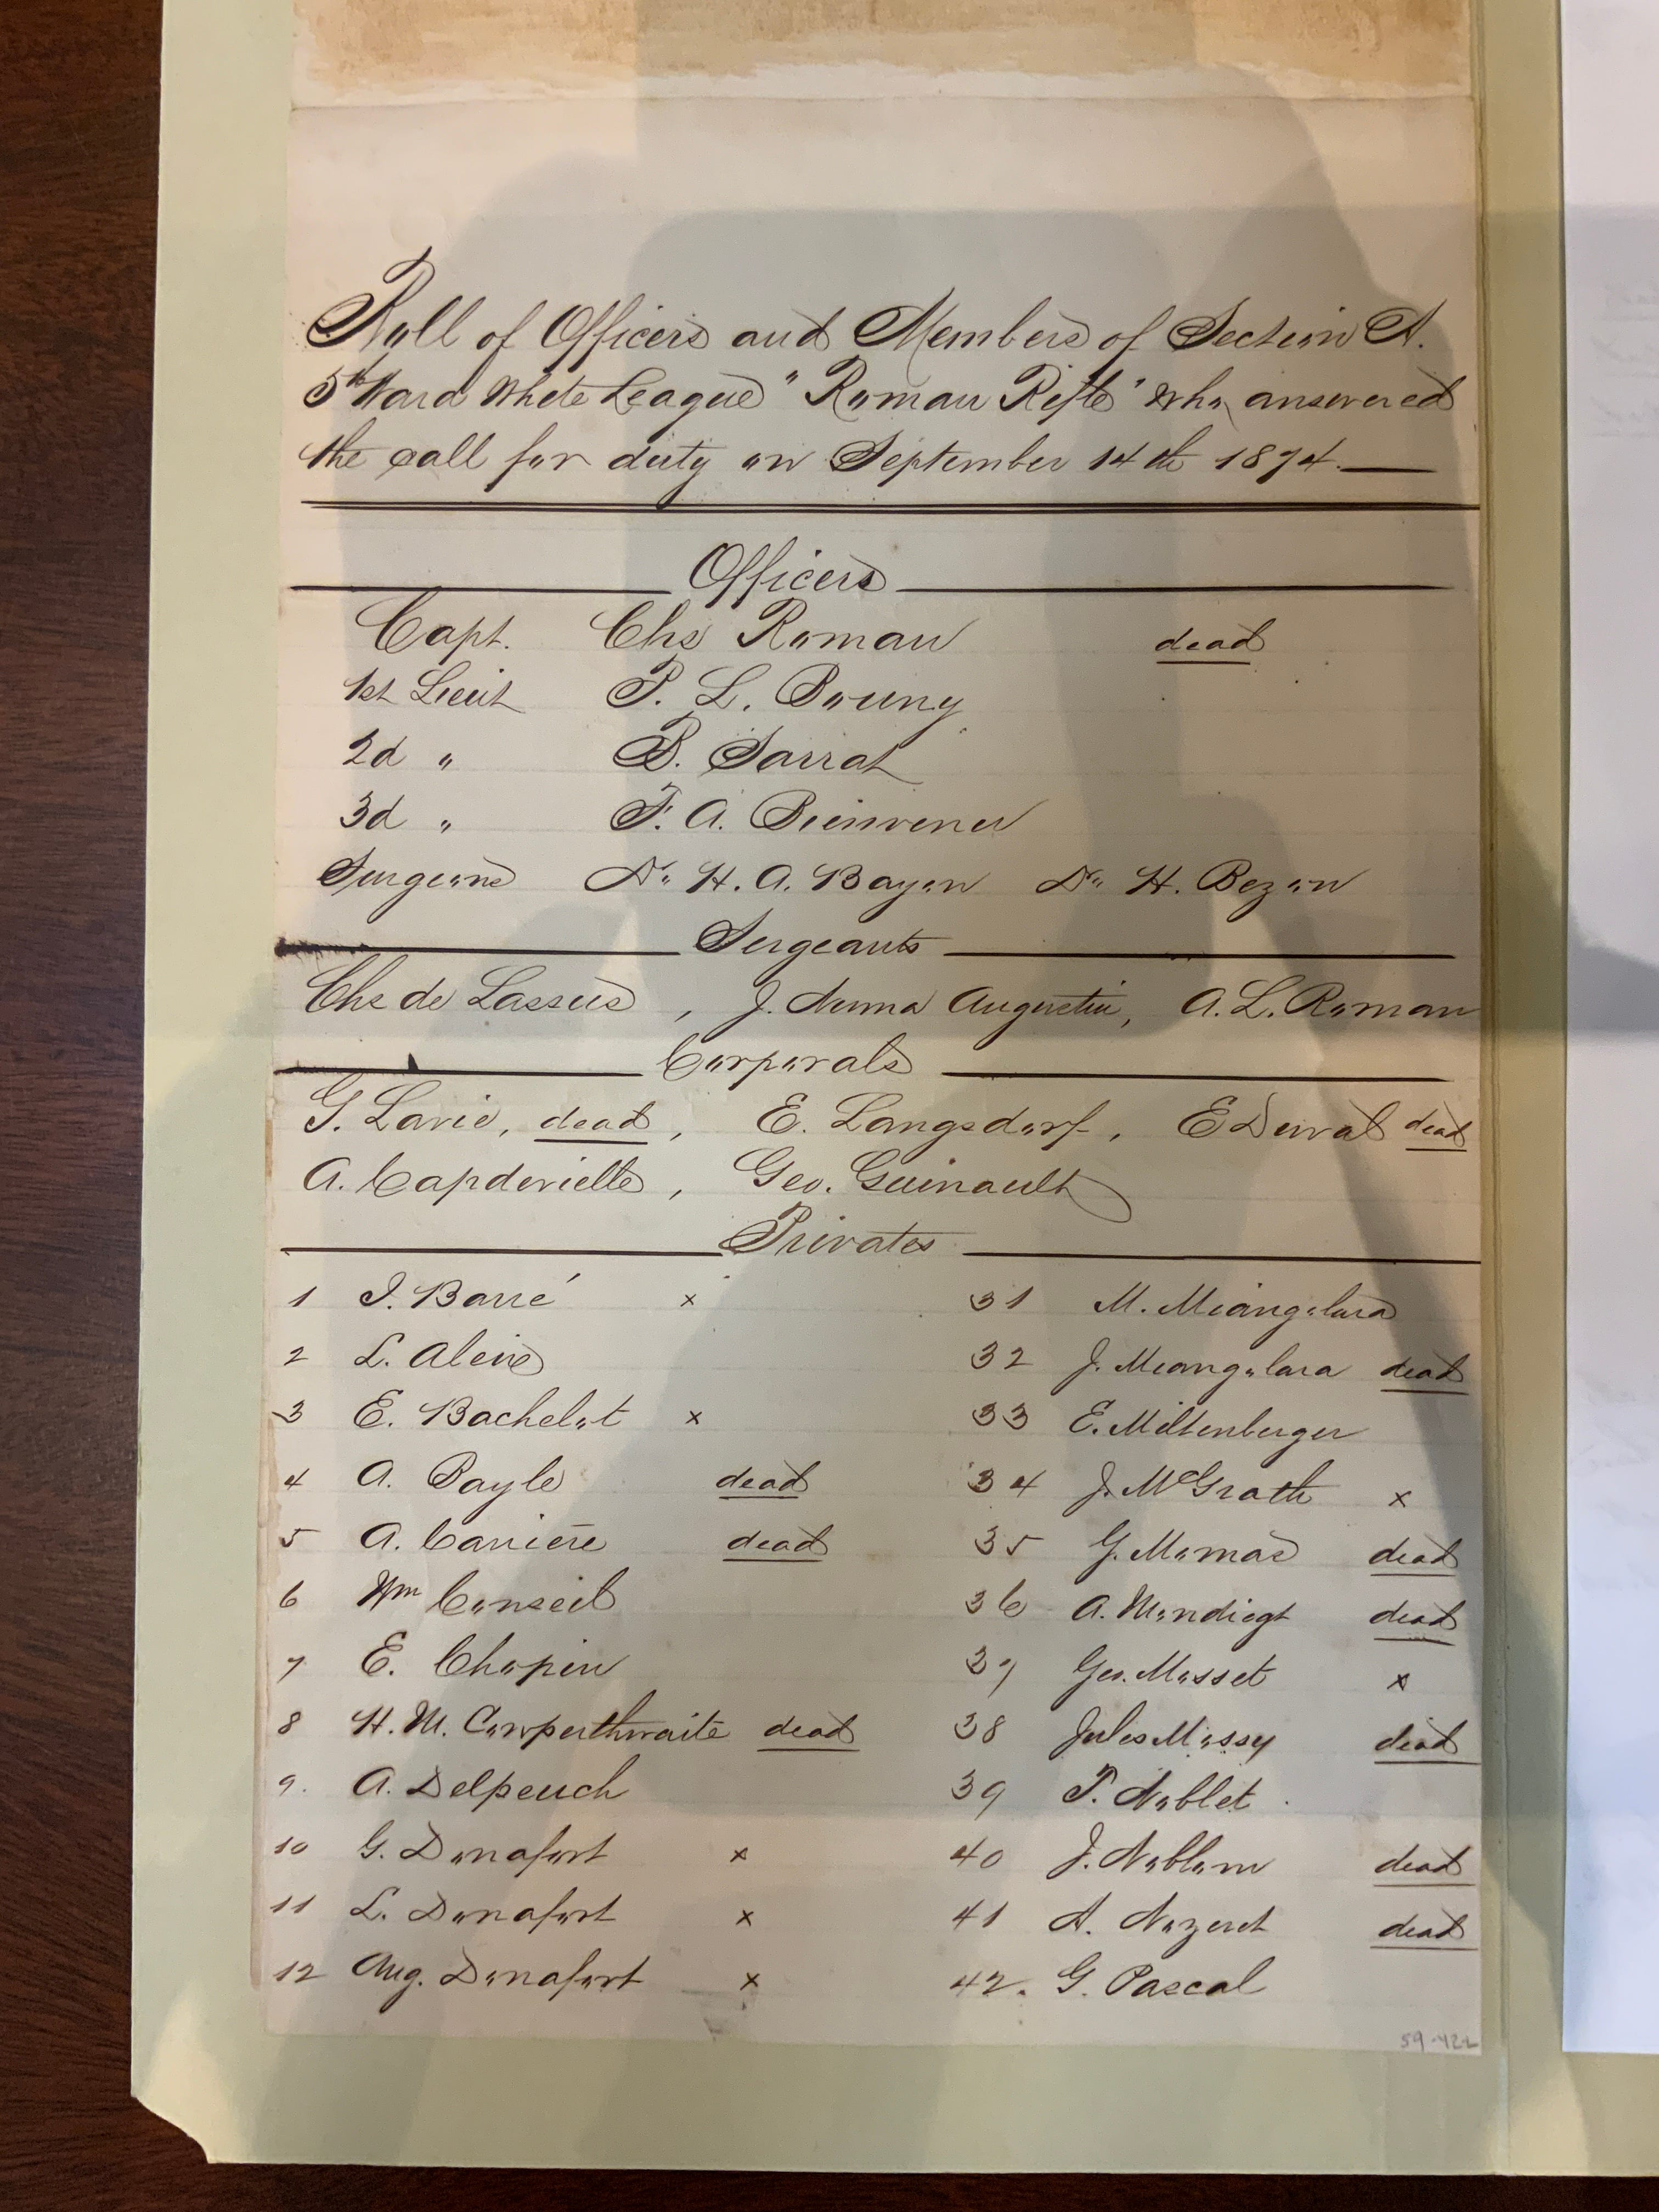 Roll of Officers and Members of Section A.
5th Ward White League "Roman Rifle" who answered
the call for duty on September 14th 1874.
Officers
Capt. Chs Roman dead
1st Lieut P. L. Bouny
2d " B. Sarrat
3d " F. A. Bienvenu
Surgeons Dr. H. A. Bayon Dr. H. Bezon
Sergeants
Chs de Lassus, J. Numa Augustin, A. L. Roman
Corporals
G. Lavie, dead, E. Langsdorf, E Duval dead
A. Capdevielle, Geo. Guinault
Privates
1 J. Barré x 31 M. Miangolara
2 L. Aleix 32 J. Miangolara dead
3 E. Bachelot x 33 E. Miltenberger
4 A. Bayle dead 34 J. McGrath x
5 A. Carrière dead 35 G. Momas dead
6 Wm Conseil 36 A. Mondiegt dead
7 E. Chopin 37 Geo. Mosset x
8 H. M. Cowperthwaite dead 38 Jules Mossy dead
9. A. Delpeuch 39 P. Noblet
10 G. Donafort x 40 J. Noblom dead
11 L. Donafort x 41 A. Nozeret dead
12 Aug. Donafort x 42. G. Pascal
59-42-L